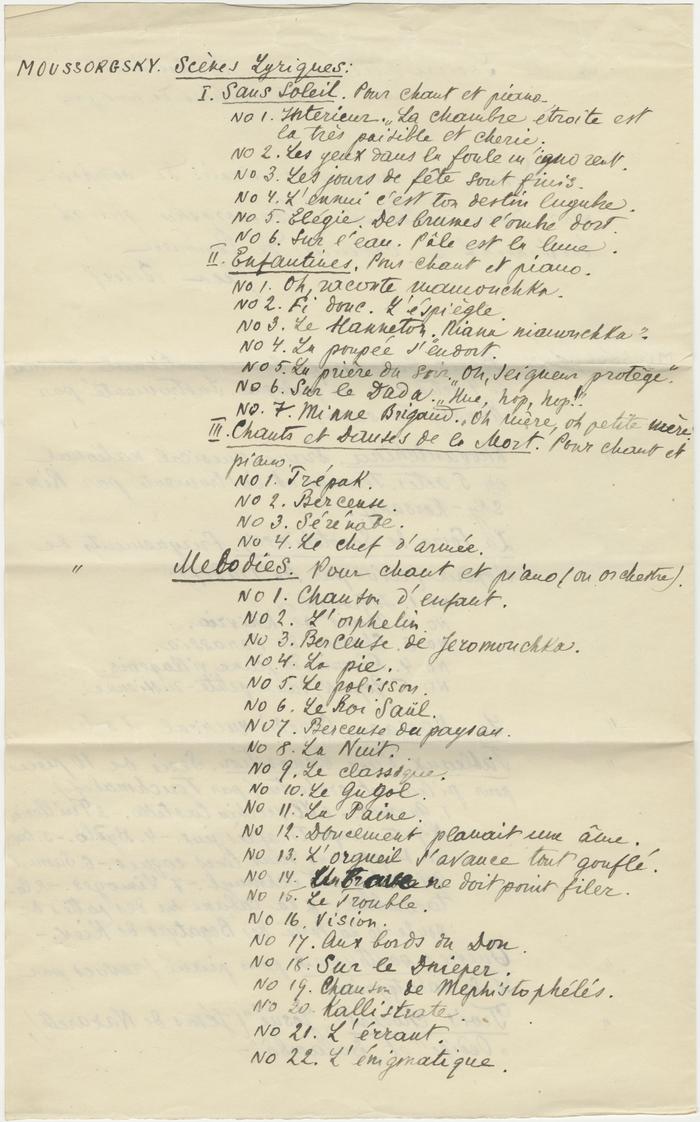 MOUSSORGSKY. Scènes Lyriques:
I. Sans Soleil. Pour chant et piano.
No 1. Intérieur. „La chambre étroite est
la très paisible et cherie.
No 2. Les yeux dans la foule m'ignorent.
No 3. Les jours de fête sont finis.
No 4. L'ennui c'est ton destin lugubre.
No 5. Elégie. Des brumes l'ombre dort.
No 6. Sur l'eau. Pâle est la lune.
II. Enfantines. Pour chant et piano.
No 1. Oh, raconte mamouchka.
No 2. Fi donc. L'éspiègle.
No 3. Le Hanneton. Niana niamouchka"
No 4. La poupée s'endort.
No 5. La prière du soir. „Oh, Seigneur protège".
No 6. Sur le Dada. „Hue, hop, hop!"
No. 7. Minne Brigaud. „Oh mère, oh petite mère
III. Chants et Danses de la Mort. Pour chant et
piano.
No 1. Trépak.
No 2. Berceuse.
No 3. Sérénade.
No 4. Le chef d'armée.
" Melodies. Pour chant et piano (ou orchestre).
No 1. Chanson d'enfant.
No 2. L'orphelin.
No 3. Berceuse de Jeromouchka.
No 4. La pie.
No 5. Le polisson.
No 6. Le Roi Saül.
No 7. Berceuse du paysan.
No 8. La Nuit.
No 9. Le classique.
No 10. Le Gugol.
No 11. La Paine.
No 12. Doucement planait une âme.
No 13. L'orgueil s'avance tout gonflé.
No 14. Un Brave ne doit point filer.
No 15. Le Trouble.
No 16. Vision.
No 17. Aux bords du Don.
No 18. Sur le Dnieper.
No 19. Chanson de Mephistophélés.
No 20. Kallistrate.
No 21. L'érrant.
No 22. L'énigmatique.